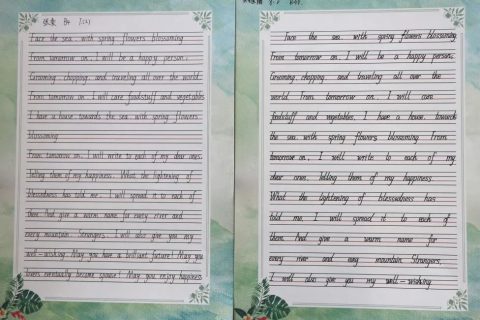 Face the sea with spring flowers blossoming
From tomorrow on, I will be a happy person;
Grooming, chopping and traveling all over the world.
From tomorrow on, I will care foodstuff and vegetables
I have a house towards the sea, with spring flowers
blossoming
From tomorrow on, I will write to each of my dear ones.
Telling them of my happiness. What the lightening of
blessedness has told me, I will spread it to each of
them. And give a warm name for every river and
every mountain. Strangers, I will also give you my
well-wishing. May you have a brilliant future! May you
lovers eventually become spouse! May you enjoy happiness
Face the sea with spring flowers blossoming
From tomorrow on, I will be a happy person;
Grooming, chopping and traveling all over the
world. From tomorrow on, I will care
foodstuff and vegetables. I have a house towards
the sea, with spring flowers blossoming. From
tomorrow on, I will write to each of my
dear ones. Telling them of my happiness.
What the lightening of blessedness has
told me, I will spread it to each of
them. And give a warm name for
every river and every mountain. Strangers,
I will also give you my well-wishing.